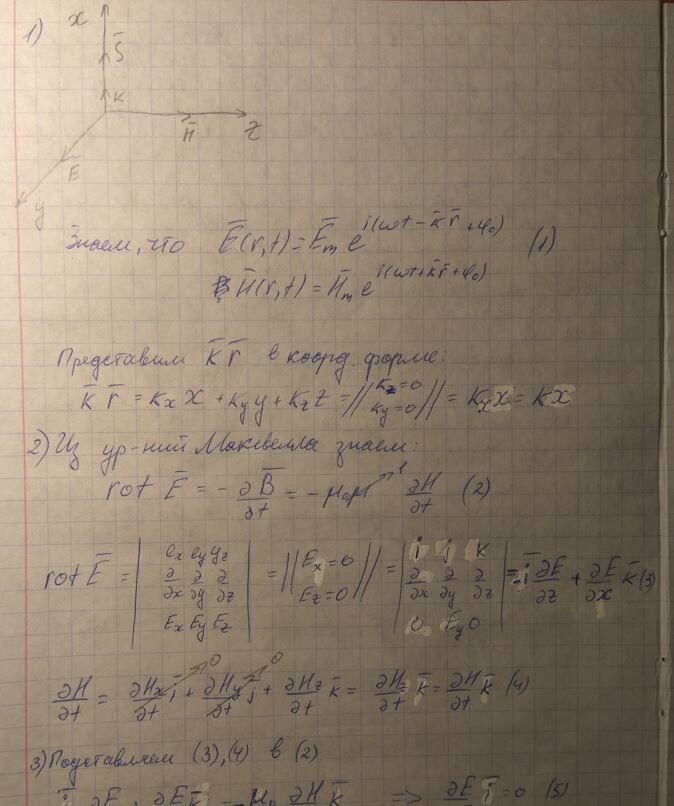 1)
x
S̄
K
H̄
z
Ē
y
Знаем, что Ē(r,t) = Ēₘ e^{i(ωt - k̄r̄ + φ₀)} (1)
H̄(r,t) = H̄ₘ e^{i(ωt + k̄r̄ + φ₀)}
Представим k̄ r̄ в коорд. форме:
k̄ r̄ = kₓx + k_y y + k_z z = || k_z=0 k_y=0 || = kₓx = kx
2) Из ур-ний Максвелла знаем:
rot Ē = - ∂B̄/∂t = -μ₀μ ↗1 ∂H̄/∂t (2)
rot Ē = | eₓ e_y y_z ∂/∂x ∂/∂y ∂/∂z Eₓ E_y E_z | = || Eₓ=0 E_z=0 || = | i j k ∂/∂x ∂/∂y ∂/∂z 0 E_y 0 | = -ī ∂E/∂z + ∂E/∂x k̄ (3)
∂H/∂t = ∂Hₓ/∂t ī ↗0 + ∂H_y/∂t j̄ ↗0 + ∂H_z/∂t k̄ = ∂H_z/∂t k̄ = ∂H/∂t k̄ (4)
3) Подставляем (3),(4) в (2)
ī ∂E ∂E k̄ -μ₀ ∂H k̄ => ∂E ī = 0 (5)